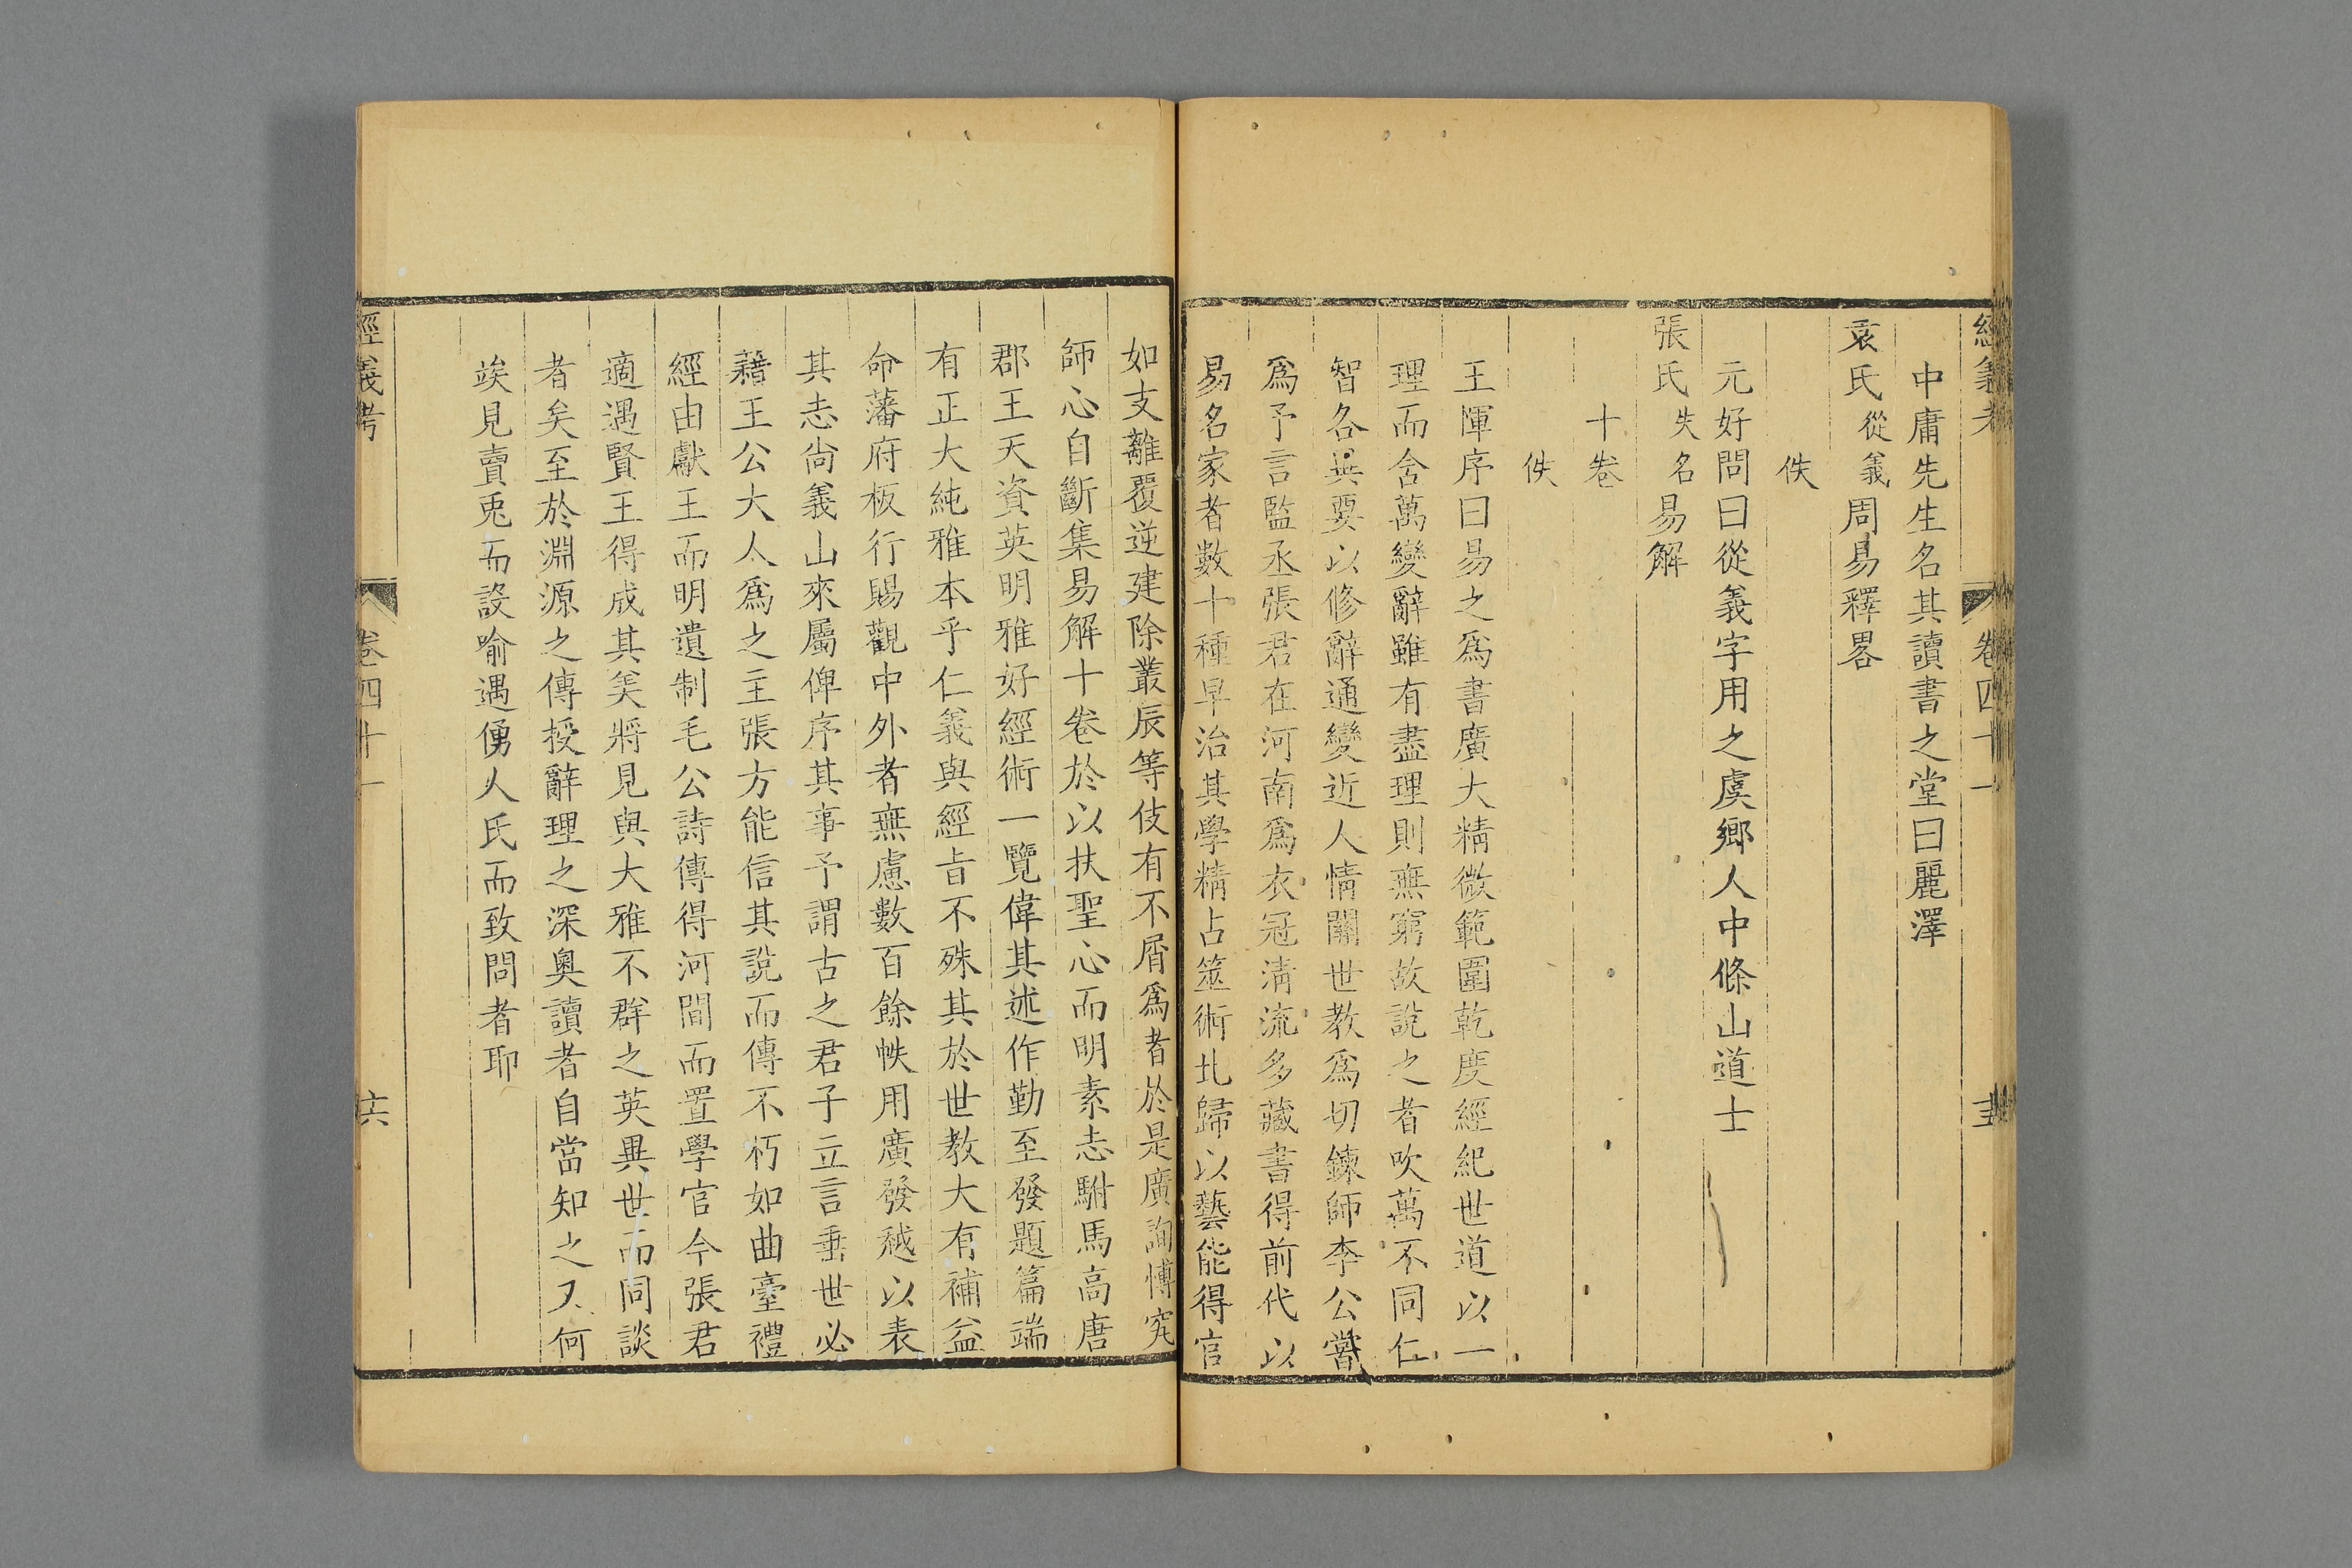 經義考 卷四十一 五
中庸先生名其讀書之堂曰麗澤
袁氏從義周易釋畧
佚
元好問曰從義字用之虞鄉人中條山道士
張氏失名易解
十卷
佚
王惲序曰易之爲書廣大精微範圍乾度經紀世道以一
理而含萬變辭雖有盡理則無窮故說之者吹萬不同仁
智各異要以修辭通變近人情關世教爲切鍊師李公嘗
爲予言監丞張君在河南爲衣冠淸流多藏書得前代以
易名家者數十種早治其學精占筮術北歸以藝能得官
如支離覆逆建除叢辰等伎有不屑爲者於是廣詢博究
師心自斷集易解十卷於以扶聖心而明素志駙馬高唐
郡王天資英明雅好經術一覽偉其述作勤至發題篇端
有正大純雅本乎仁義與經旨不殊其於世教大有補益
命藩府板行賜觀中外者無慮數百餘帙用廣發越以表
其志尙義山來屬俾序其事予謂古之君子立言垂世必
藉王公大人爲之主張方能信其說而傳不朽如曲臺禮
經由獻王而明遺制毛公詩傳得河間而置學官今張君
適遇賢王得成其美將見與大雅不群之英異世而同談
者矣至於淵源之傳授辭理之深奧讀者自當知之又何
竢見賣兎而設喻遇傭人氏而致問者耶
經義考 卷四十一 六